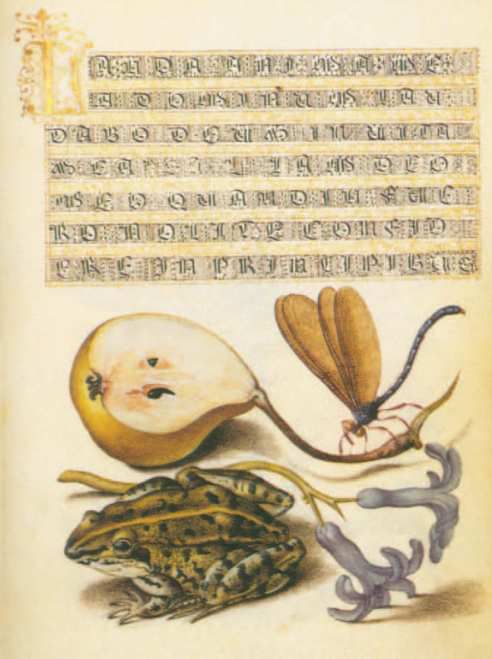 LAUDA ANIMA ME
A DOMINUM LAU
DABO DEUM IN UITA
MEA PSALLAM DEO
MEO QUANDIU FUE
RO NOLITE CONFID
ERE IN PRINCIPIBUS